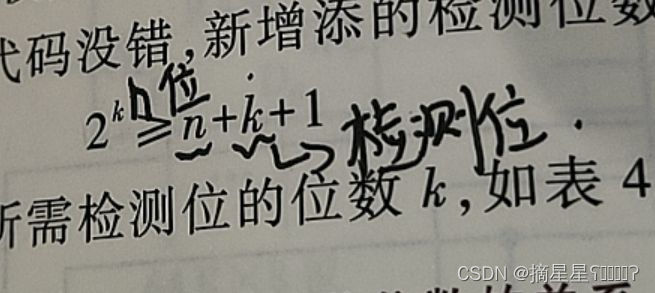 代码没错,新增添的检测位数
n位
2^k ≥ n + k + 1 检测位.
所需检测位的位数 k,如表 4
CSDN @摘星星